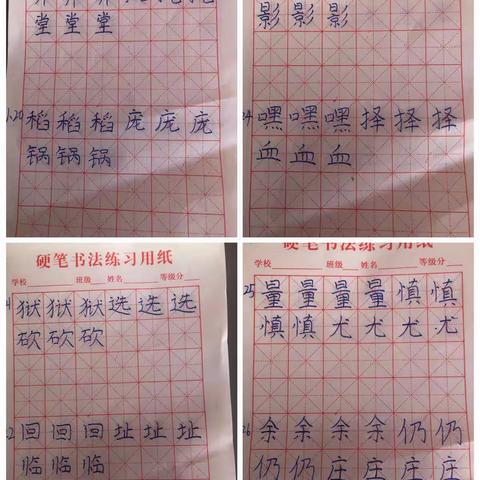 堂堂堂
1.20 稻稻稻庞庞庞
锅锅锅
影影影
24 嘿嘿嘿择择择
血血血
硬笔书法练习用纸
学校 班级 姓名 等级分
狱狱狱选选选
砍砍砍
回回回址址址
临临临
硬笔书法练习用纸
学校 班级 姓名 等级分
25 量量量量慎慎
慎慎尤尤尤尤
26 余余余余仍仍
仍仍庄庄庄庄